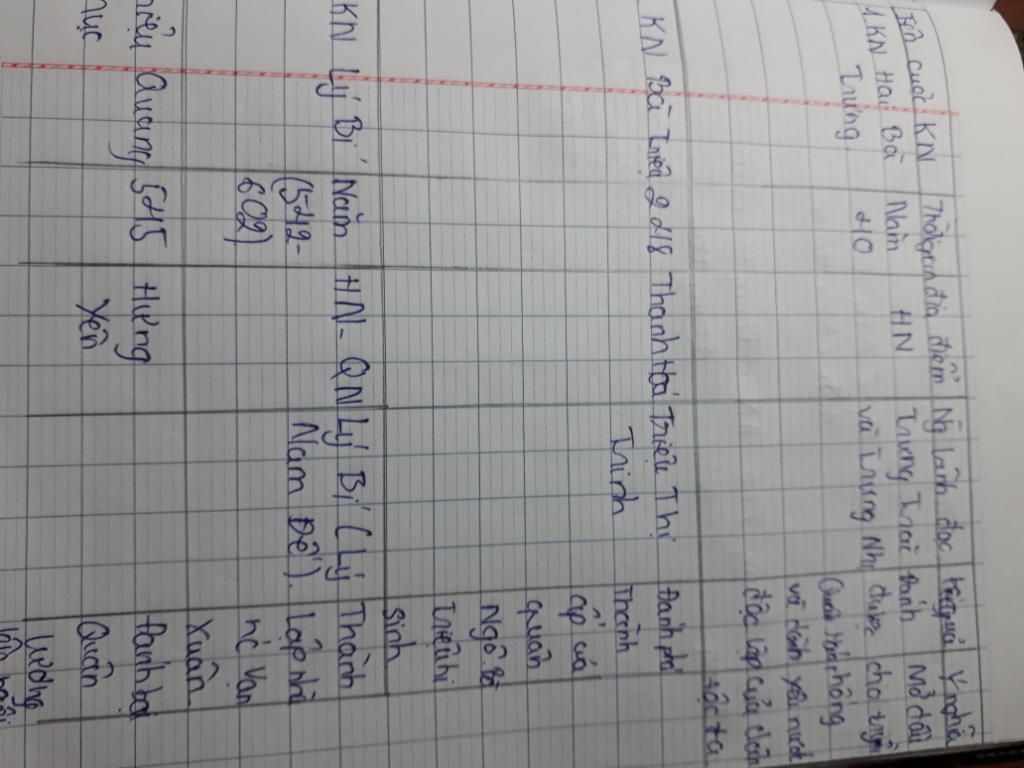 Tên cuộc KN Thời gian địa điểm Ng lãnh đạo Kết quả Ý nghĩa
1. KN Hai Bà Năm HN Trưng Trắc Đánh Mở đầu
Trưng 40 và Trưng Nhị được cho
Quân Hán
và dành yêu nước
độc lập của dân
tộc ta
KN Bà Triệu 248 Thanh Hoá Triệu Thị Đánh phá
Trinh Thành
ấp và
quân
Ngô. Bà
Triệu hi
Sinh
KN Lý Bí Năm HN - QN Lý Bí (Lý Thành
(542- Nam Đế). Lập nhà
602) nc Vạn
Xuân
Triệu Quang 545 Hưng Đánh bại
Phục Yên Quân
Lương